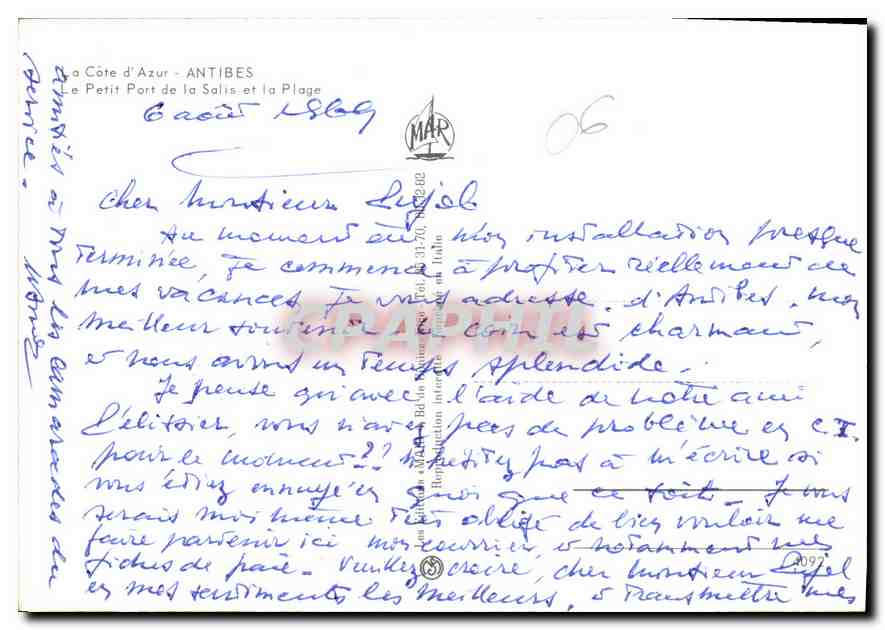 La Côte d'Azur - ANTIBES
Le Petit Port de la Salis et la Plage
6 août
MAR
06
Cher Monsieur
Au moment où mon installation presque
terminée, je commence à profiter réellement de
mes vacances je vous adresse d'Antibes mon
meilleur souvenir le coin est charmant,
et nous avons un temps splendide.
Je pense qu'avec l'aide de notre ami
vous n'avez pas de problème en C.T.
pour le moment ?? N'hésitez pas à m'écrire si
vous étiez ennuyé en quoi que ce soit - Je vous
serais moi même très obligé de bien vouloir me
faire parvenir ici mon courrier, et notamment mes
fiches de paie - Veuillez croire, cher Monsieur
en mes sentiments les meilleurs, et transmettre mes
amitiés à tous les camarades du
service.
Les Editions «MAR»
Reproduction interdite
en Italie
CPAPHIL
4092